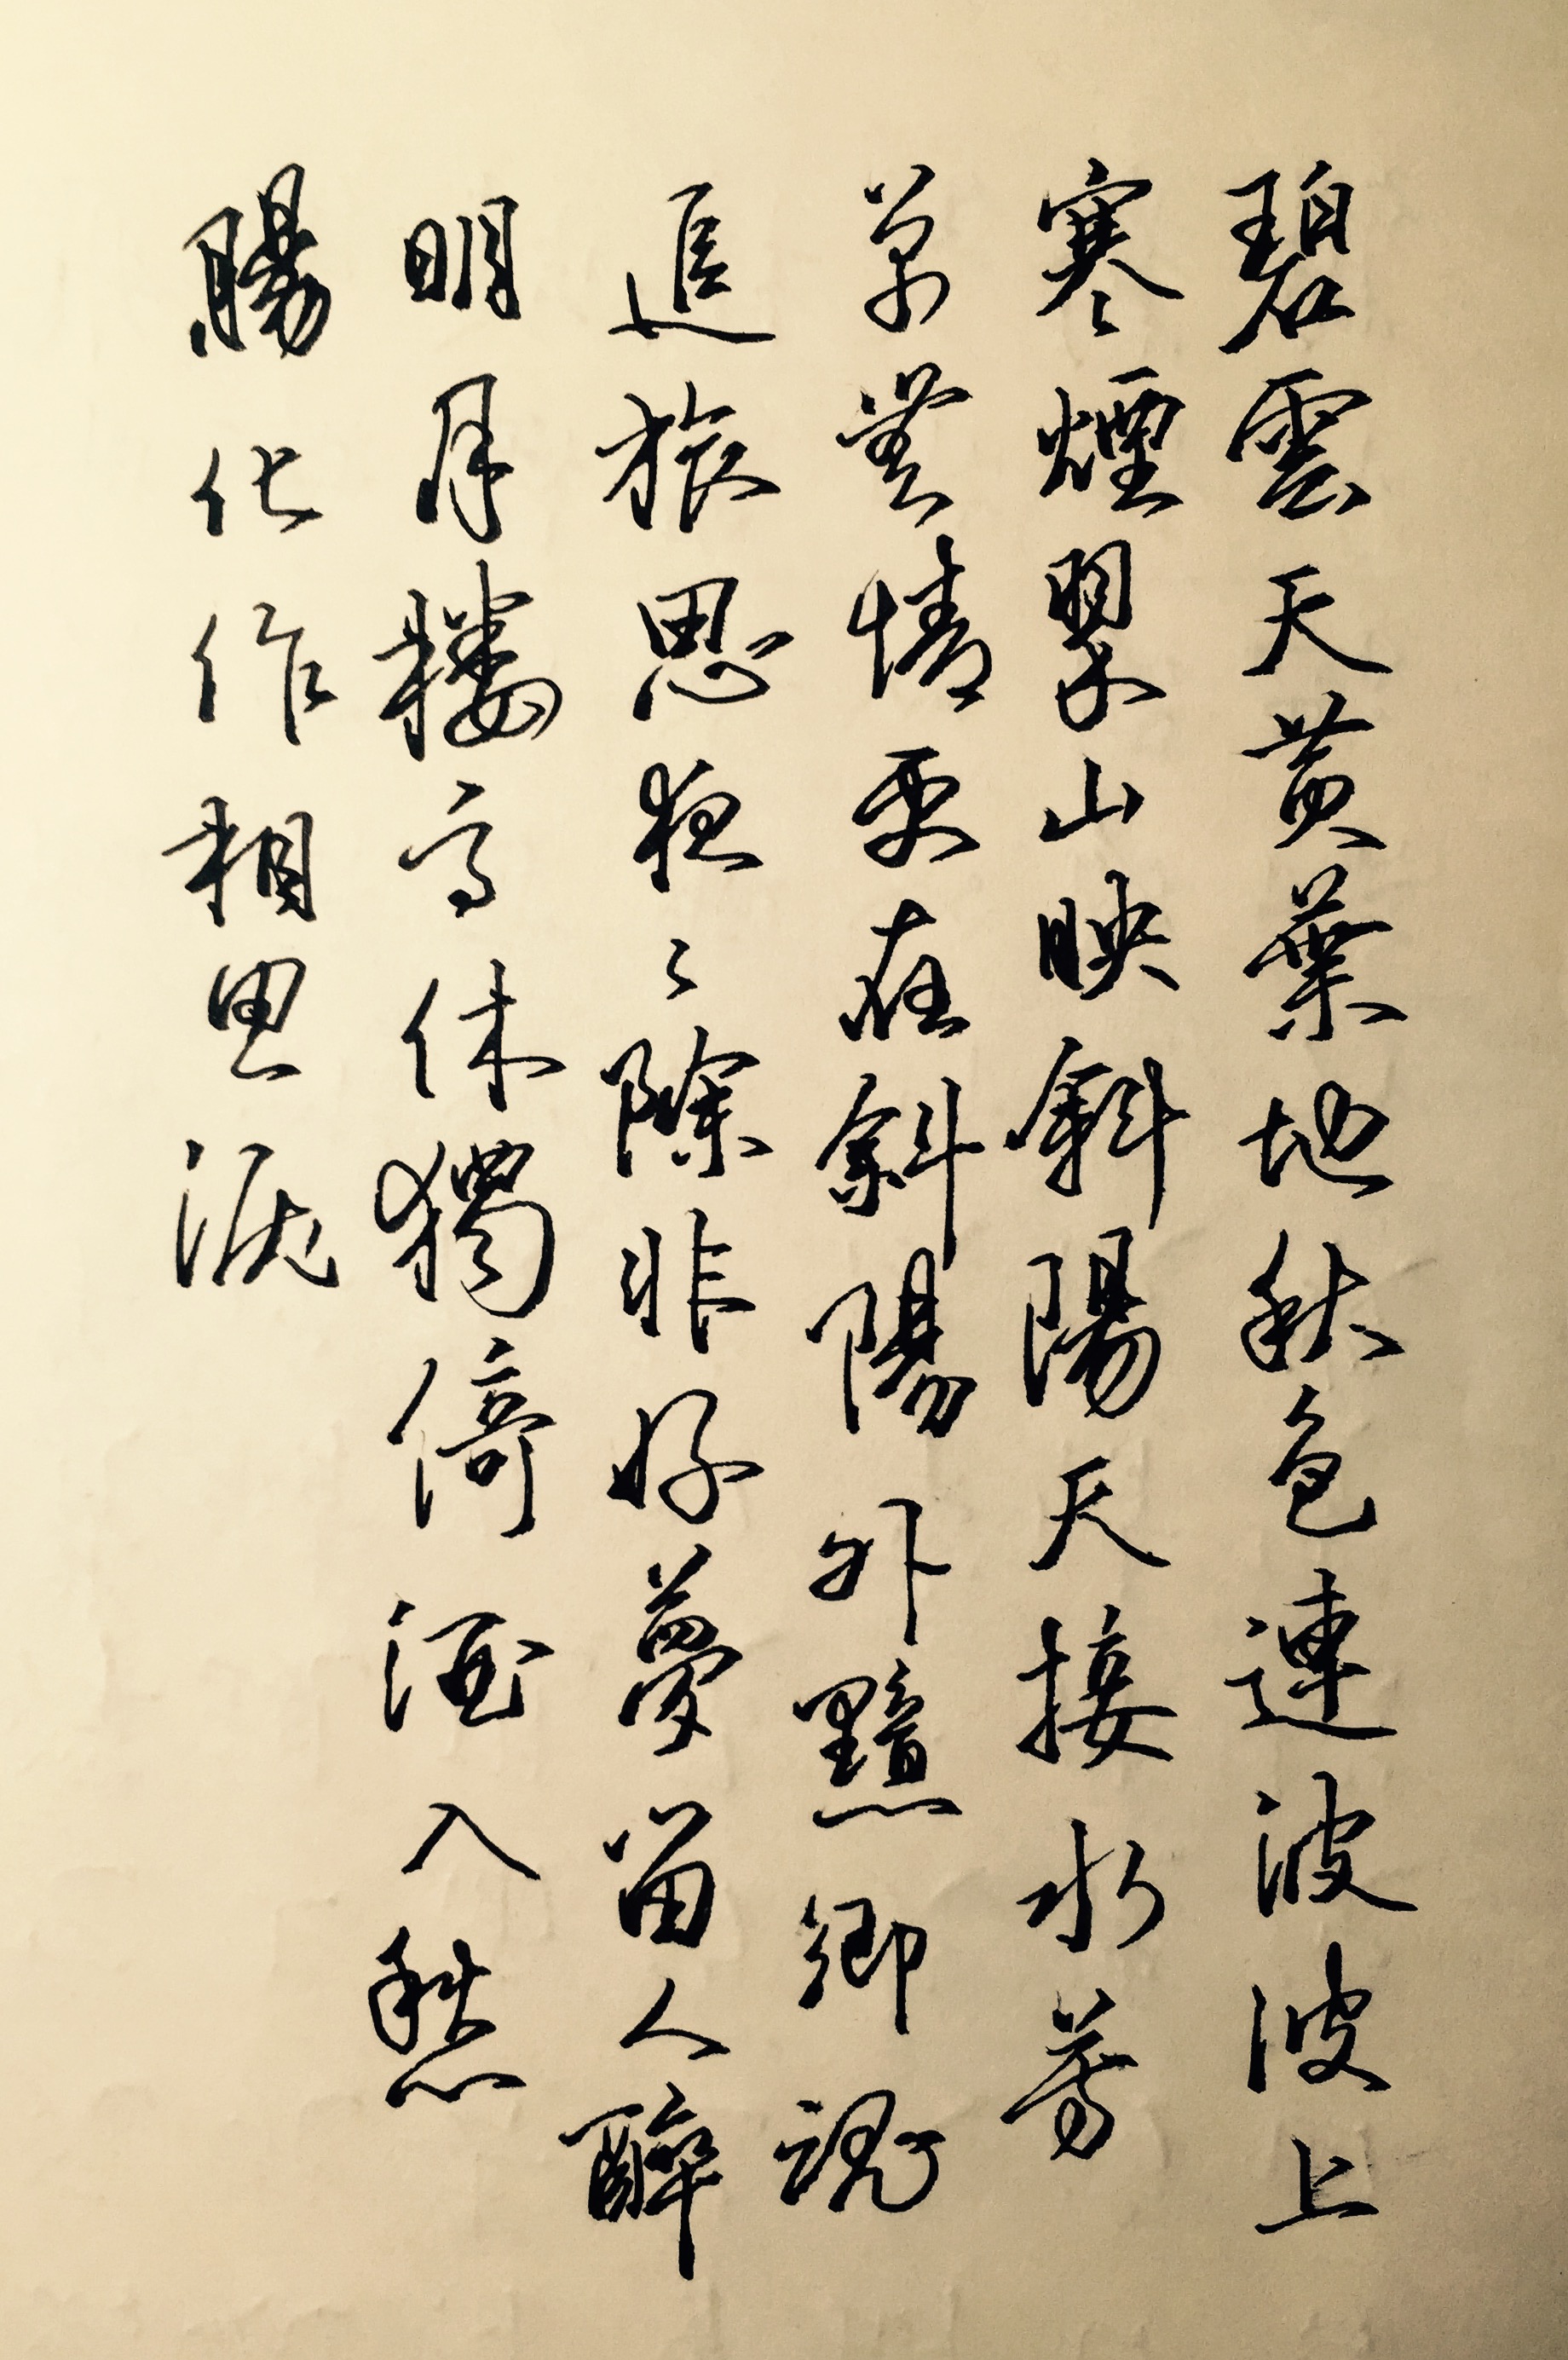 碧雲天黃葉地秋色連波波上
寒煙翠山映斜陽天接水芳
草無情更在斜陽外黯鄉魂
追旅思夜夜除非好夢留人醉
明月樓高休獨倚酒入愁
腸化作相思淚